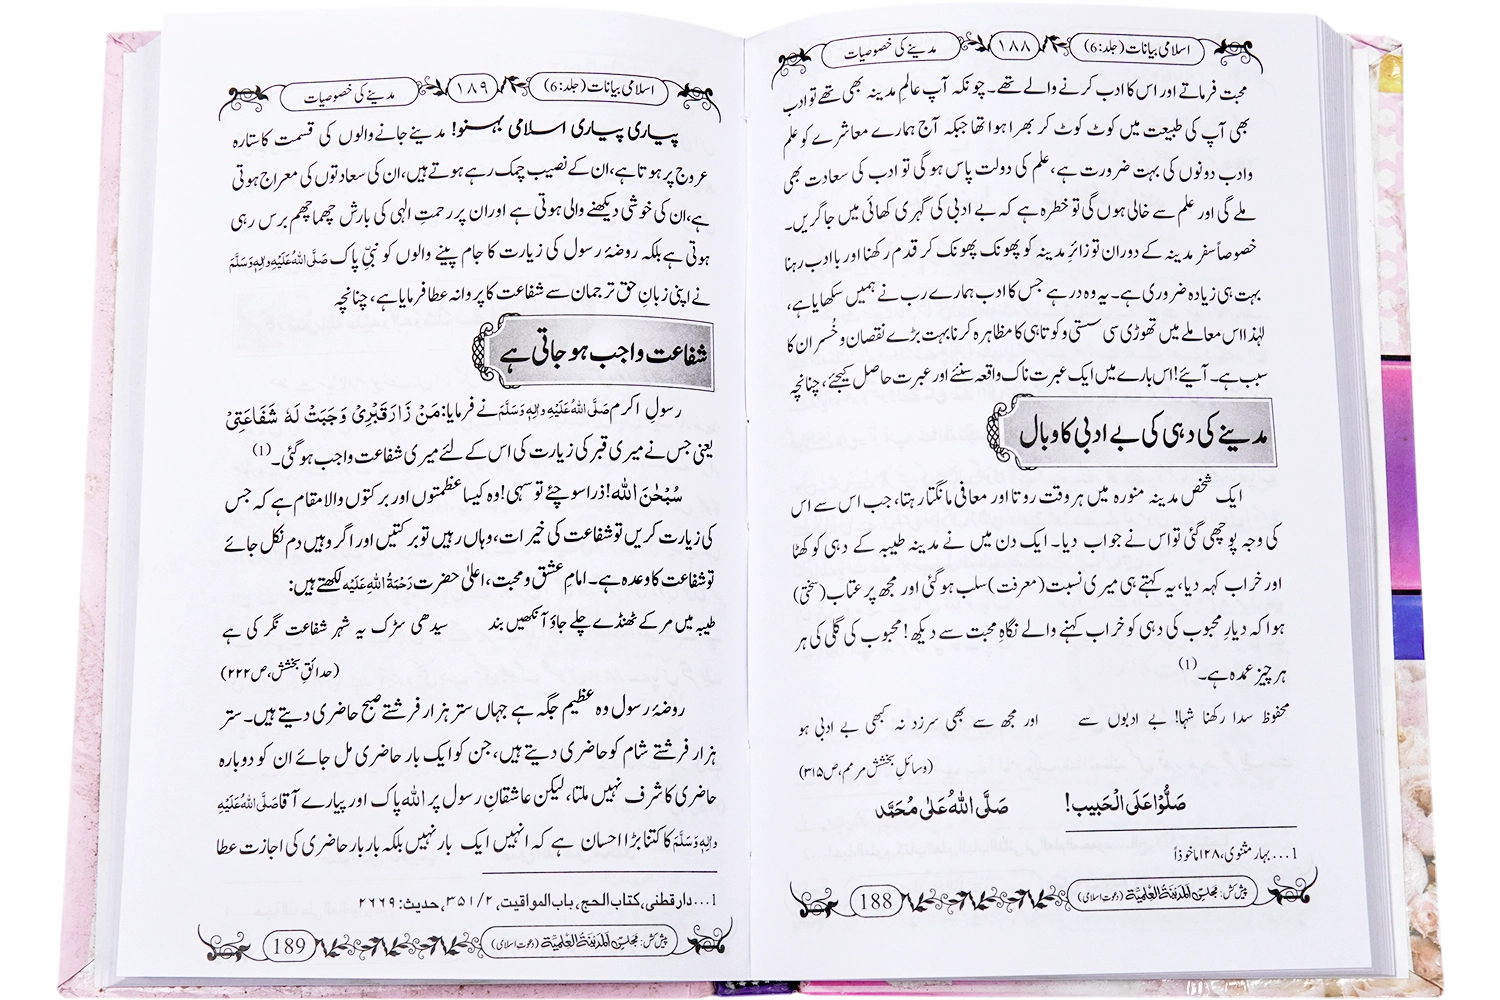 اسلامی بیانات (جلد:6) ۱۸۸ مدینے کی خصوصیات
محبت فرماتے اور اس کا ادب کرنے والے تھے۔ چونکہ آپ عالمِ مدینہ بھی تھے تو ادب
بھی آپ کی طبیعت میں کوٹ کوٹ کر بھرا ہوا تھا جبکہ آج ہمارے معاشرے کو علم
وادب دونوں کی بہت ضرورت ہے، علم کی دولت پاس ہوگی تو ادب کی سعادت بھی
ملے گی اور علم سے خالی ہوں گی تو خطرہ ہے کہ بے ادبی کی گہری کھائی میں جا گریں۔
خصوصاً سفرِ مدینہ کے دوران تو زائرِ مدینہ کو پھونک پھونک کر قدم رکھنا اور باادب رہنا
بہت ہی زیادہ ضروری ہے۔ یہ وہ در ہے جس کا ادب ہمارے رب نے ہمیں سکھایا ہے،
لہٰذا اس معاملے میں تھوڑی سی سستی و کوتاہی کا مظاہرہ کرنا بہت بڑے نقصان و خُسران کا
سبب ہے۔ آیئے! اس بارے میں ایک عبرت ناک واقعہ سنئے اور عبرت حاصل کیجئے، چنانچہ
مدینے کی دہی کی بے ادبی کا وبال
ایک شخص مدینہ منورہ میں ہر وقت روتا اور معافی مانگتا رہتا، جب اس سے اس
کی وجہ پوچھی گئی تو اس نے جواب دیا۔ ایک دن میں نے مدینہ طیبہ کے دہی کو کھٹا
اور خراب کہہ دیا، یہ کہتے ہی میری نسبت (معرفت) سلب ہوگئی اور مجھ پر عتاب (سختی)
ہوا کہ دیارِ محبوب کی دہی کو خراب کہنے والے نگاہِ محبت سے دیکھ! محبوب کی گلی کی ہر
ہر چیز عمدہ ہے۔(1)
محفوظ سدا رکھنا شہا! بے ادبوں سے اور مجھ سے بھی سرزد نہ کبھی بے ادبی ہو
(وسائل بخشش مرمم، ص۳۱۵)
صَلُّوْا عَلَى الْحَبِيب! صَلَّى اللّٰهُ عَلٰى مُحَمَّد
1…بہار مثنوی، ۱۲۸ ماخوذاً
پیش کش: مجلس المدینۃ العلمیۃ (دعوت اسلامی) 188
اسلامی بیانات (جلد:6) ۱۸۹ مدینے کی خصوصیات
پیاری پیاری اسلامی بہنو! مدینے جانے والوں کی قسمت کا ستارہ
عروج پر ہوتا ہے، ان کے نصیب چمک رہے ہوتے ہیں، ان کی سعادتوں کی معراج ہوتی
ہے، ان کی خوشی دیکھنے والی ہوتی ہے اور ان پر رحمتِ الٰہی کی بارش چھما چھم برس رہی
ہوتی ہے بلکہ روضۂ رسول کی زیارت کا جام پینے والوں کو نبیِّ پاک صَلَّى اللّٰهُ عَلَيْهِ وَاٰلِهٖ وَسَلَّمَ
نے اپنی زبانِ حق ترجمان سے شفاعت کا پروانہ عطا فرمایا ہے، چنانچہ
شفاعت واجب ہو جاتی ہے
رسولِ اکرم صَلَّى اللّٰهُ عَلَيْهِ وَاٰلِهٖ وَسَلَّمَ نے فرمایا: مَنْ زَارَ قَبْرِيْ وَجَبَتْ لَهٗ شَفَاعَتِيْ
یعنی جس نے میری قبر کی زیارت کی اس کے لئے میری شفاعت واجب ہوگئی۔(1)
سُبْحٰنَ اللّٰه! ذرا سوچئے تو سہی! وہ کیسا عظمتوں اور برکتوں والا مقام ہے کہ جس
کی زیارت کریں تو شفاعت کی خیرات، وہاں رہیں تو برکتیں اور اگر وہیں دم نکل جائے
تو شفاعت کا وعدہ ہے۔ امامِ عشق و محبت، اعلیٰ حضرت رَحْمَةُ اللّٰهِ عَلَيْه لکھتے ہیں:
طیبہ میں مر کے ٹھنڈے چلے جاؤ آنکھیں بند سیدھی سڑک یہ شہر شفاعت نگر کی ہے
(حدائقِ بخشش، ص۲۲۲)
روضۂ رسول وہ عظیم جگہ ہے جہاں ستر ہزار فرشتے صبح حاضری دیتے ہیں۔ ستر
ہزار فرشتے شام کو حاضری دیتے ہیں، جن کو ایک بار حاضری مل جائے ان کو دوبارہ
حاضری کا شرف نہیں ملتا، لیکن عاشقانِ رسول پر اللّٰہ پاک اور پیارے آقا صَلَّى اللّٰهُ عَلَيْهِ
وَاٰلِهٖ وَسَلَّمَ کا کتنا بڑا احسان ہے کہ انہیں ایک بار نہیں بلکہ بار بار حاضری کی اجازت عطا
1…دارقطنی، کتاب الحج، باب المواقیت، ۲/۳۵۱، حدیث: ۲۶۶۹
پیش کش: مجلس المدینۃ العلمیۃ (دعوت اسلامی) 189